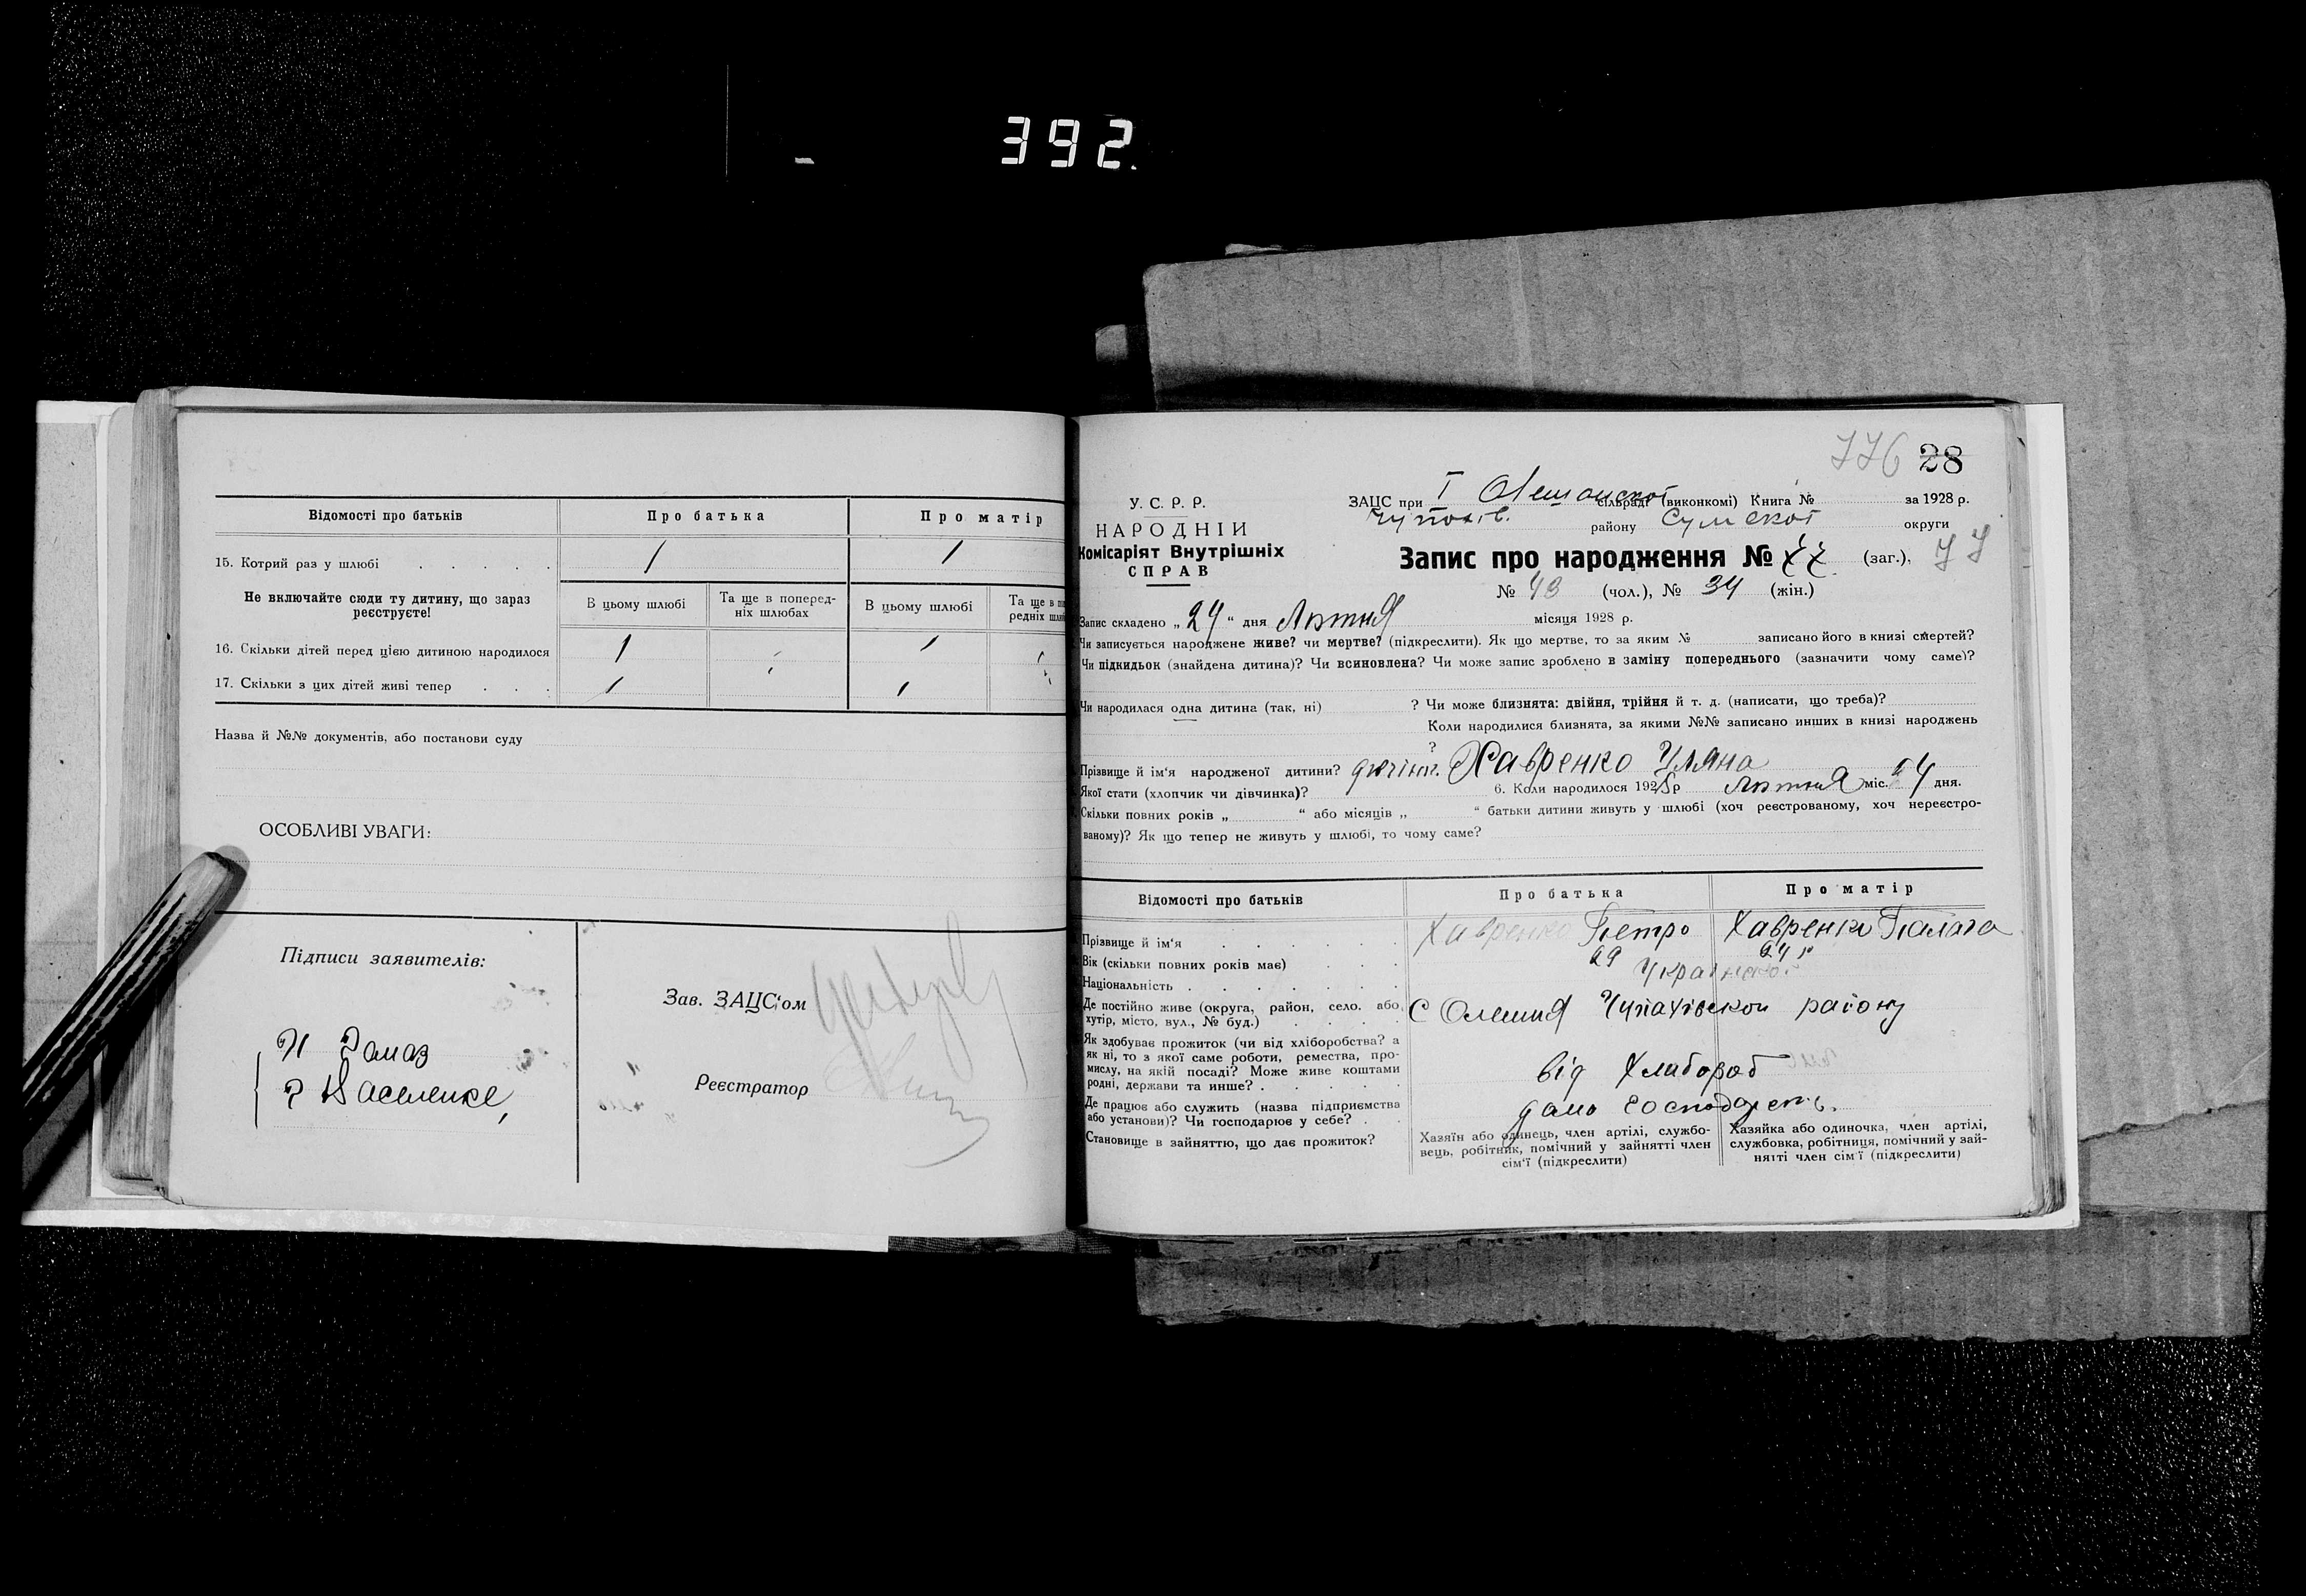 392.
Відомості про батьків
Про батька
Про матір
15. Котрий раз у шлюбі
/
/
Не включайте сюди ту дитину, що зараз
реєструєте!
В цьому шлюбі
Та ще в поперед-
ніх шлюбах
В цьому шлюбі
Та ще в по
редніх шлю
16. Скільки дітей перед цією дитиною народилося
/
/
17. Скільки з цих дітей живі тепер
/
/
Назва й №№ документів, або постанови суду
ОСОБЛИВІ УВАГИ:
Підписи заявителів:
Зав. ЗАЦС'ом
Реєстратор
776 28
У. С. Р. Р.
НАРОДНІЙ
Комісаріят Внутрішніх
СПРАВ
ЗАЦС при І сільраді (виконкомі) Книга № за 1928 р.
району Сумської округи
Запис про народження № 77 (заг.), 77
№ 43 (чол.), № 34 (жін.)
Запис складено „ 24 “ дня Лютня місяця 1928 р.
Чи записується народжене живе? чи мертве? (підкреслити). Як що мертве, то за яким № записано його в книзі смертей?
Чи підкидьок (знайдена дитина)? Чи всиновлена? Чи може запис зроблено в заміну попереднього (зазначити чому саме)?
Чи народилася одна дитина (так, ні) ? Чи може близнята: двійня, трійня й т. д. (написати, що треба)?
Коли народилися близнята, за якими №№ записано инших в книзі народжень
?
Прізвище й ім'я народженої дитини? Хавренко Уляна
Якої стати (хлопчик чи дівчинка)? 6. Коли народилося 1928 р Лютня міс. дня.
Скільки повних років „ “ або місяців „ “ батьки дитини живуть у шлюбі (хоч реєстрованому, хоч нереєстро-
ваному)? Як що тепер не живуть у шлюбі, то чому саме?
Відомості про батьків
Про батька
Про матір
Прізвище й ім'я
Хавренко Петро
Хавренко Палага
Вік (скільки повних років має)
29
24 р
Національність
Де постійно живе (округа, район, село, або
хутір, місто, вул., № буд.)
С Олешня Чупахівської району
Як здобуває прожиток (чи від хліборобства? а
як ні, то з якої саме роботи, ремества, про-
мислу, на якій посаді? Може живе коштами
родні, держави та инше?
від Хлібороб
Де працює або служить (назва підприємства
або установи)? Чи господарює у себе?
Становище в зайняттю, що дає прожиток?
Хазяїн або одинець, член артілі, службо-
вець, робітник, помічний у зайнятті член
сім'ї (підкреслити)
Хазяйка або одиночка, член артілі,
службовка, робітниця, помічний у зай-
нятті член сім'ї (підкреслити)